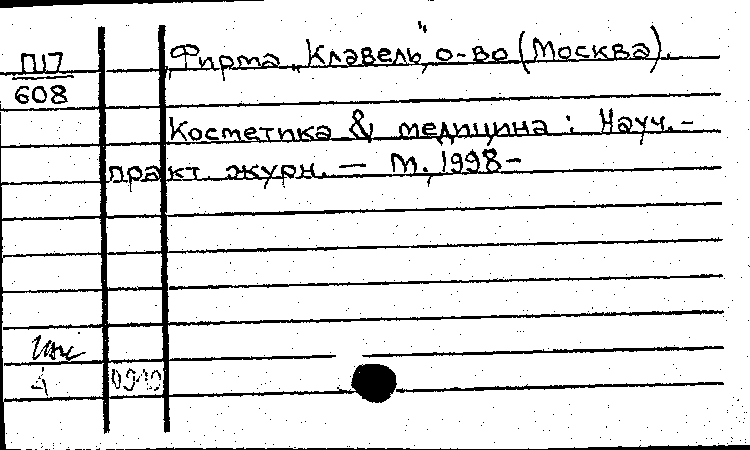 П17
608
Фирма „Клавель", о-во (Москва).
Косметика & медицина : Науч.-
практ. журн. — М., 1998-
4